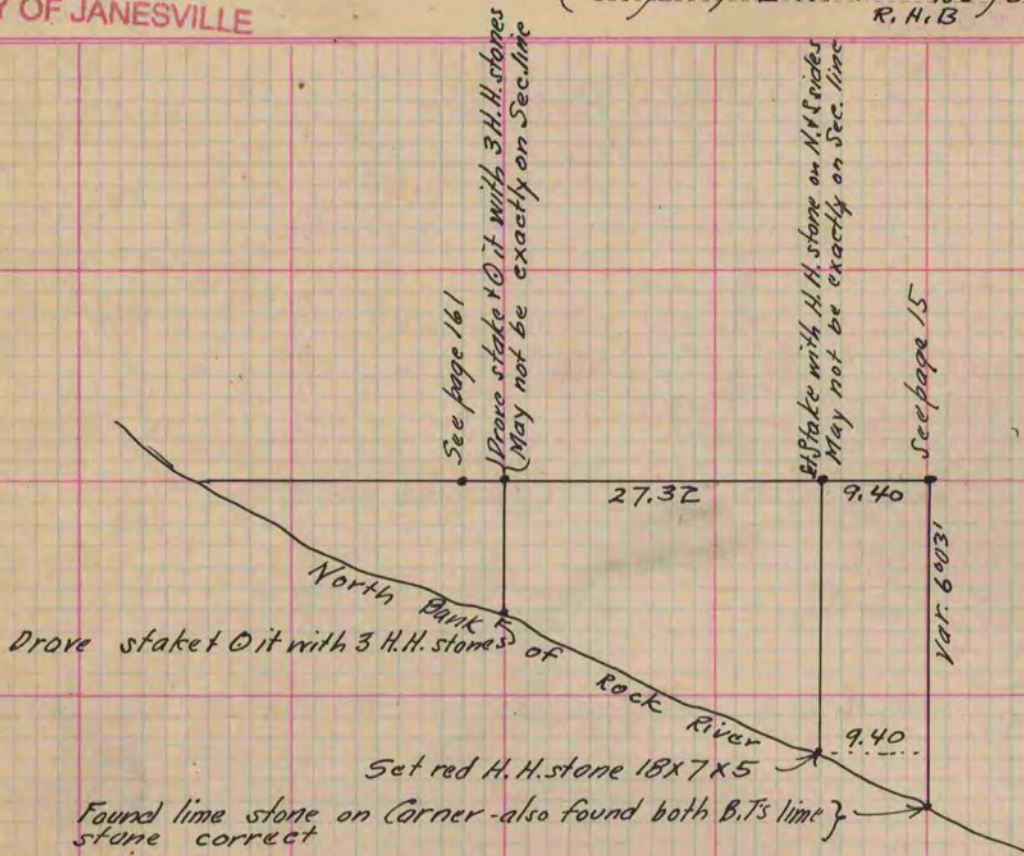 Y OF JANESVILLE
R.H.B
See page 161
Drove stake & ⊙ it with 3 H.H. stones
May not be exactly on Sec. line
Set Stake with H.H. stone on N. & S sides
May not be exactly on Sec. line
See page 15
27.32
9.40
Var. 6°03'
North Bank of Rock River
Drove stake & ⊙ it with 3 H.H. stones
9.40
Set red H.H. stone 18X7X5
Found lime stone on Corner - also found both B.T's lime
stone correct